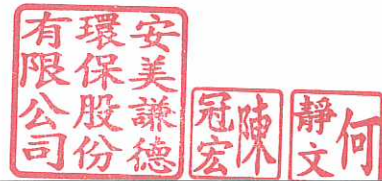 安美謙德
環保股份
有限公司
陳冠宏
何靜文